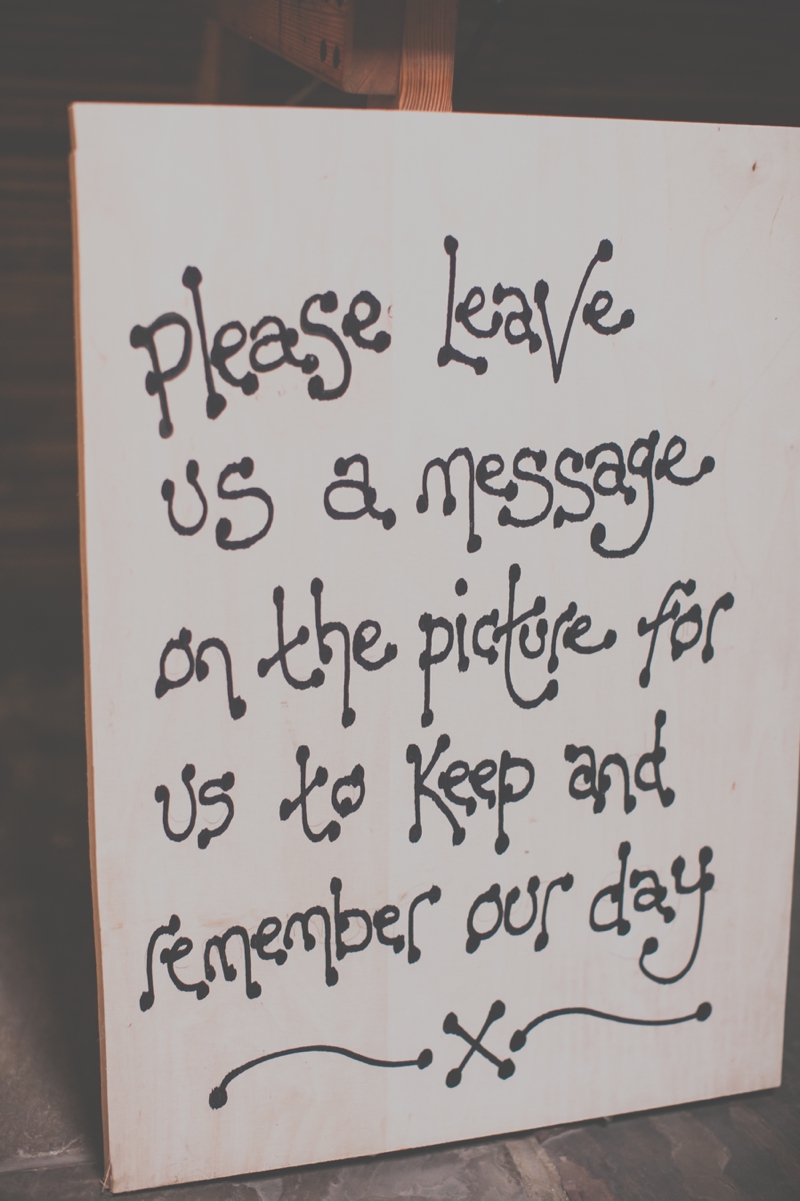 please leave
us a message
on the picture for
us to keep and
remember our day
x